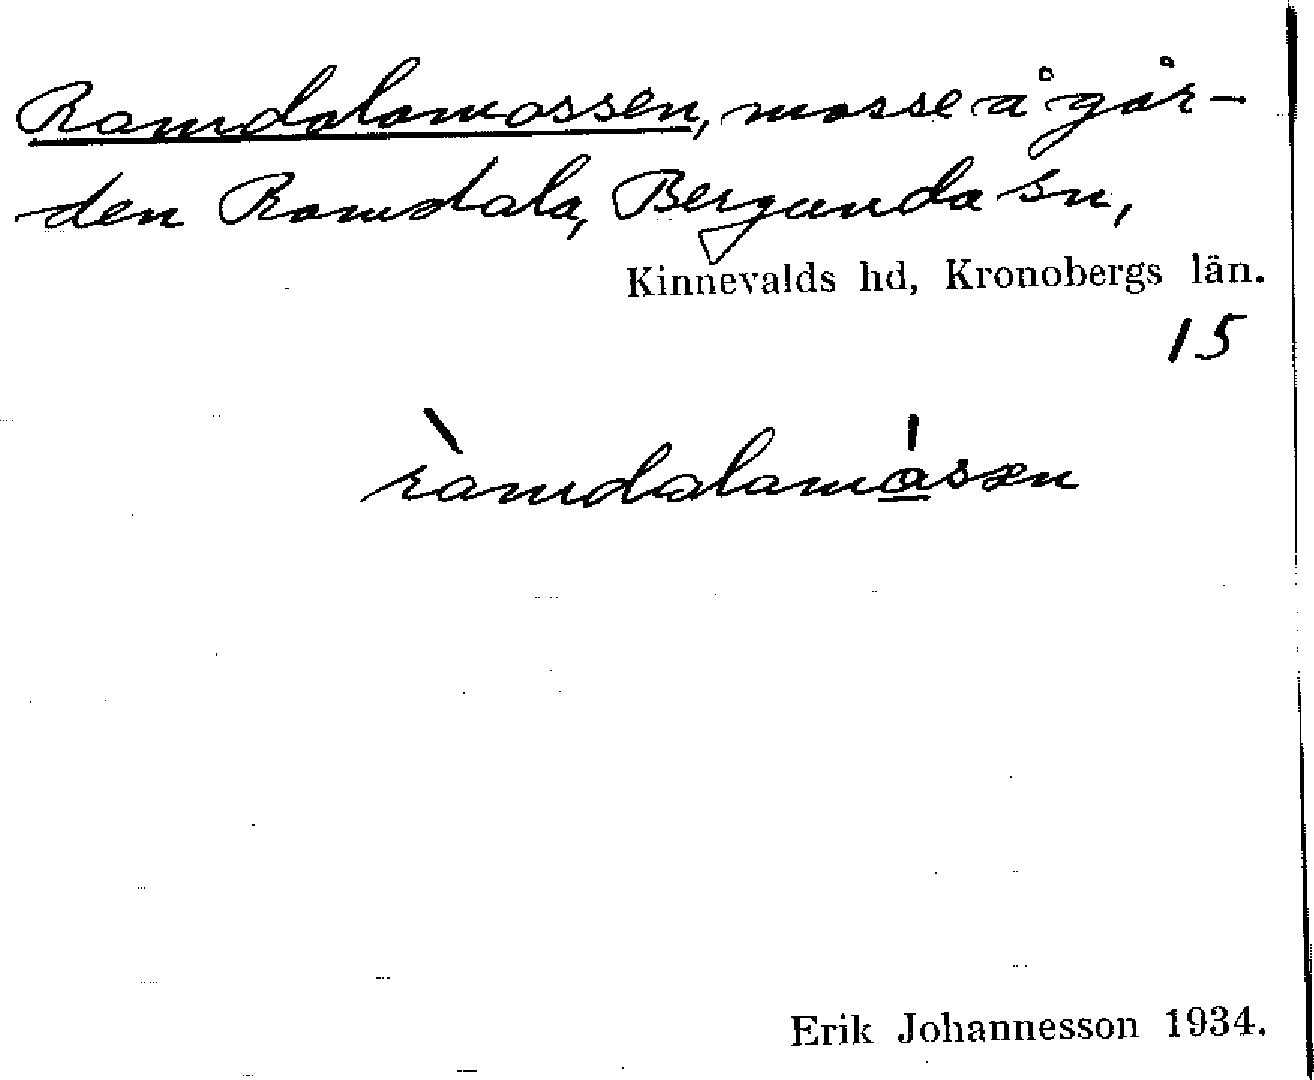 Ramdalamossen, mosse å går-
den Ramdala, Bergunda sn,
Kinnevalds hd, Kronobergs län.
15
ràmdalamásen
Erik Johannesson 1934.